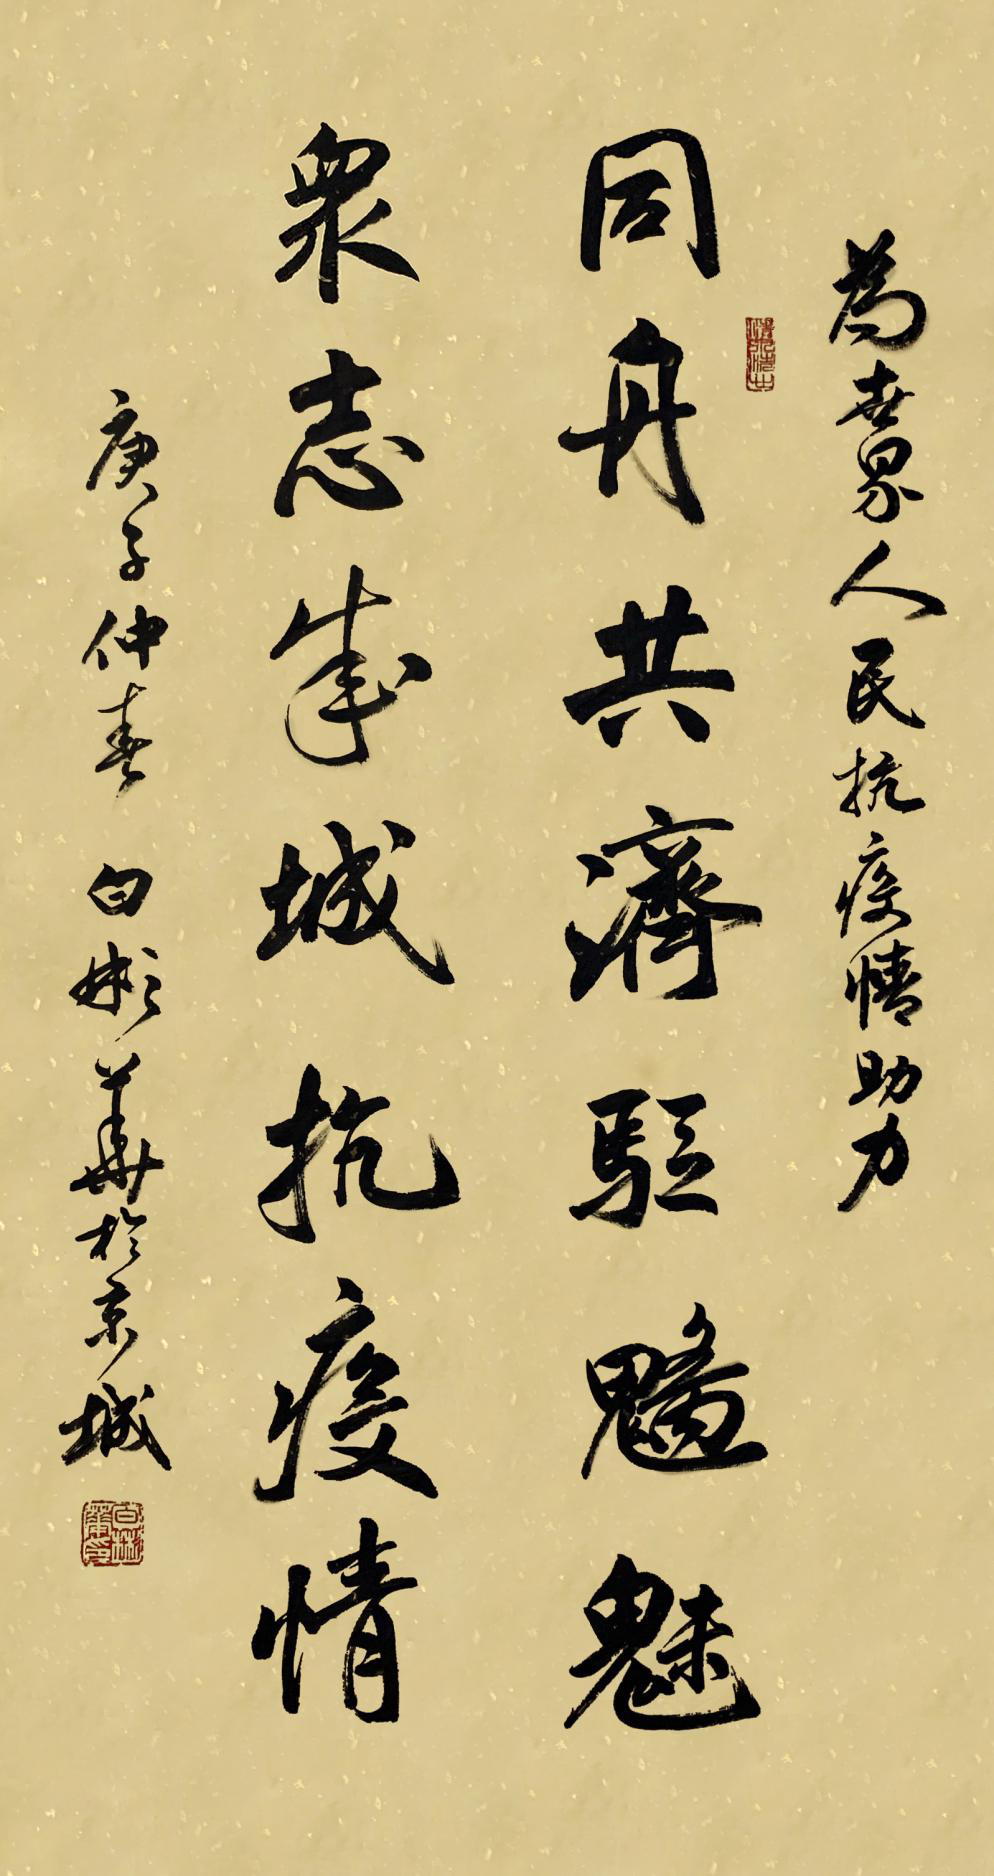 為世界人民抗疫情助力
同舟共濟駐魑魅
眾志成城抗疫情
庚子仲春 白彬華於京城
白彬華印